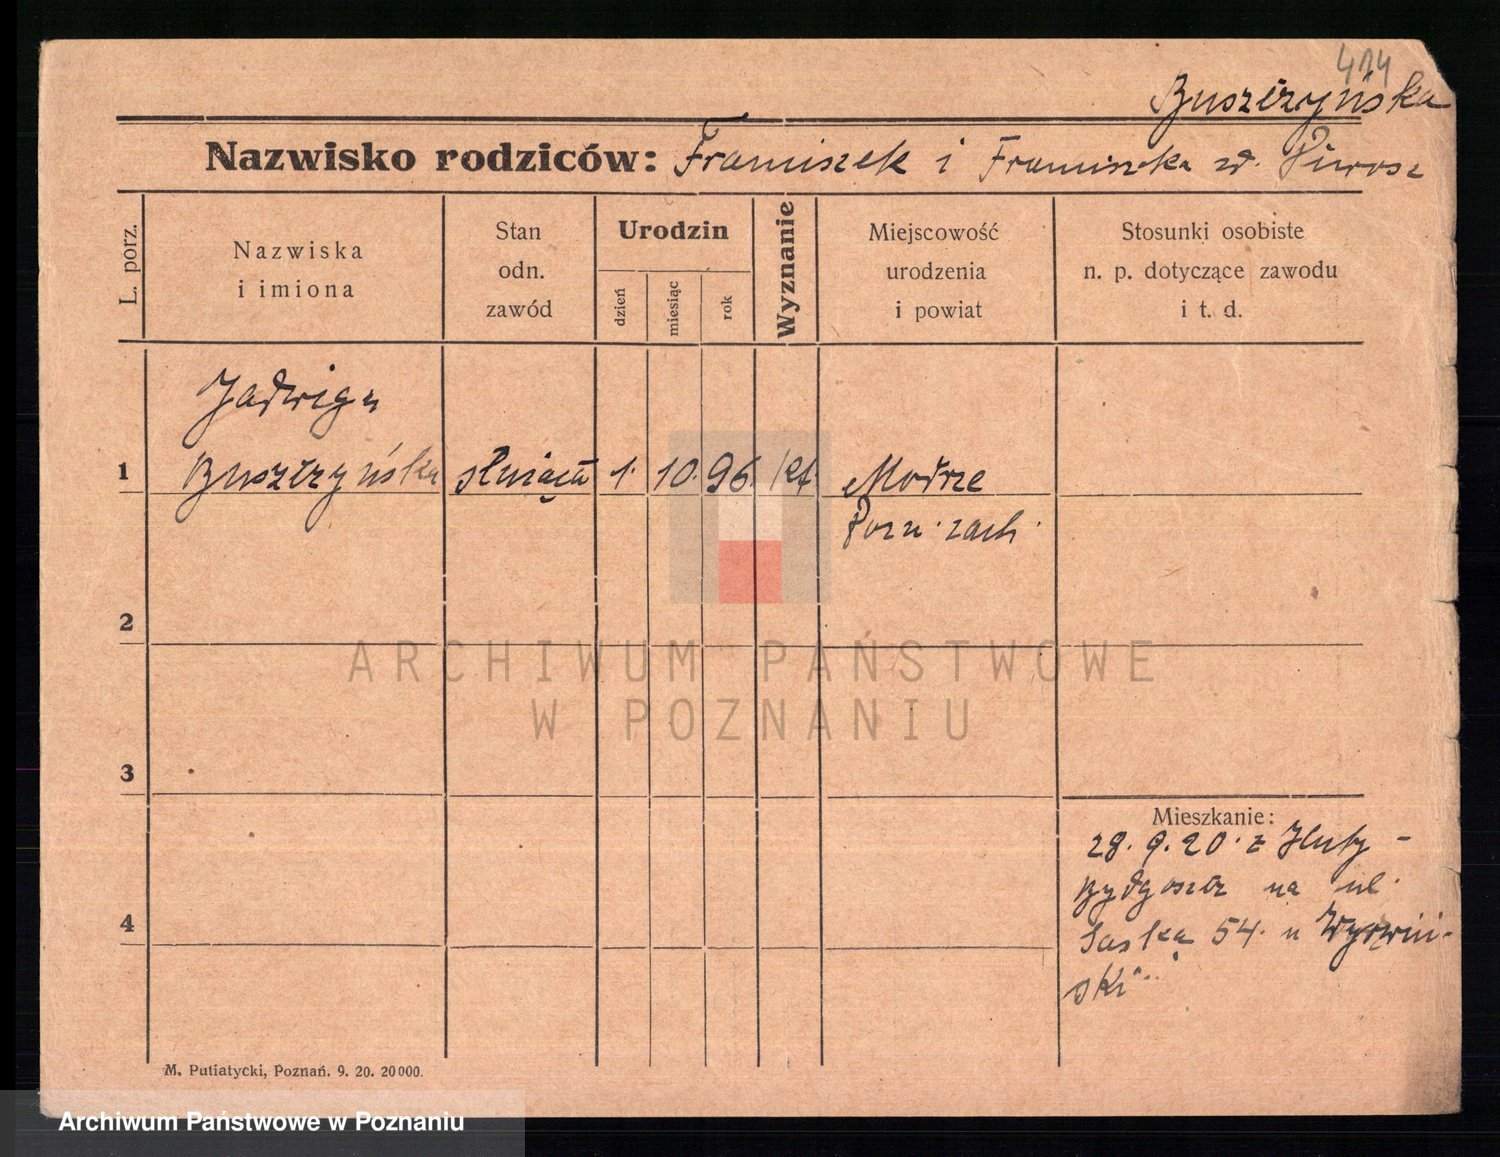 414
Buszczyńska
Nazwisko rodziców: Franciszek i Franciszka zd.
L. porz.
Nazwiska
i imiona
Stan
odn.
zawód
Urodzin
dzień
miesiąc
rok
Wyznanie
Miejscowość
urodzenia
i powiat
Stosunki osobiste
n. p. dotyczące zawodu
i t. d.
Jadwiga
1 Buszczyńska służąca 1. 10. 96. kt. Modrze
Pozn. zach.
2
3
Mieszkanie:
28. 9. 20. z Huty
Bydgoszcz na ul.
4
Saska 54. u
ski
M. Putiatycki, Poznań. 9. 20. 20000.
ARCHIWUM PAŃSTWOWE
W POZNANIU
Archiwum Państwowe w Poznaniu